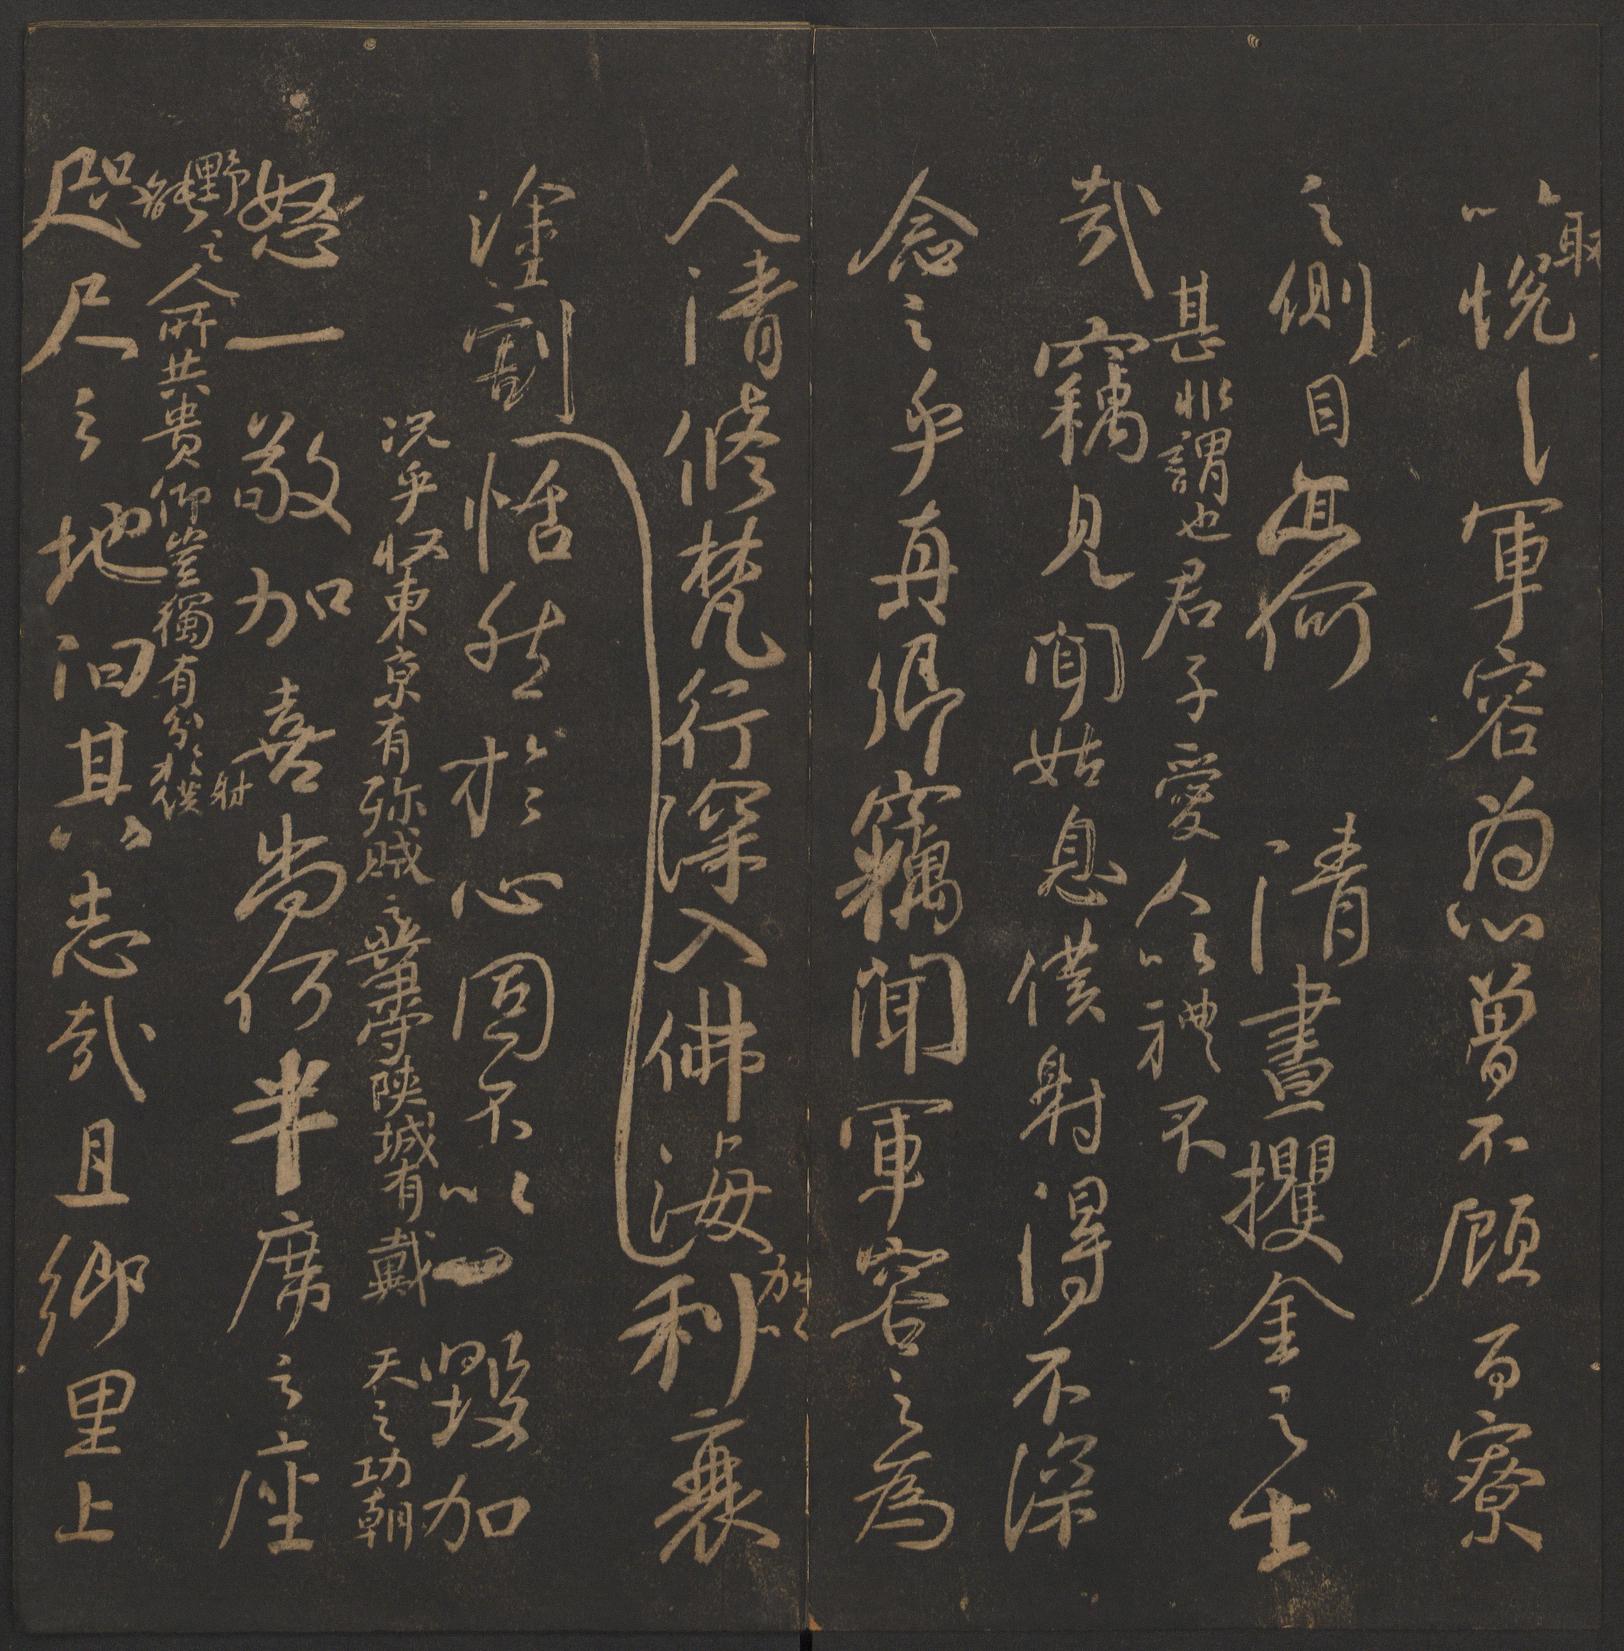 以取悅軍容為心曾不顧百寮
之側目亦何清晝攫金之士
哉
甚非謂也君子愛人以禮不
竊見聞姑息僕射得不深
念之乎真卿竊聞軍容之為
人清修梵行深入佛海加以利衰
塗割恬然於心固不以一毀加
況乎收東京有殄賊之業守陝城有戴天之功朝
怒一敬加喜尚何半席之座
野之人所共貴仰豈獨有分於僕射
咫尺之地能汨其志哉且鄉里上